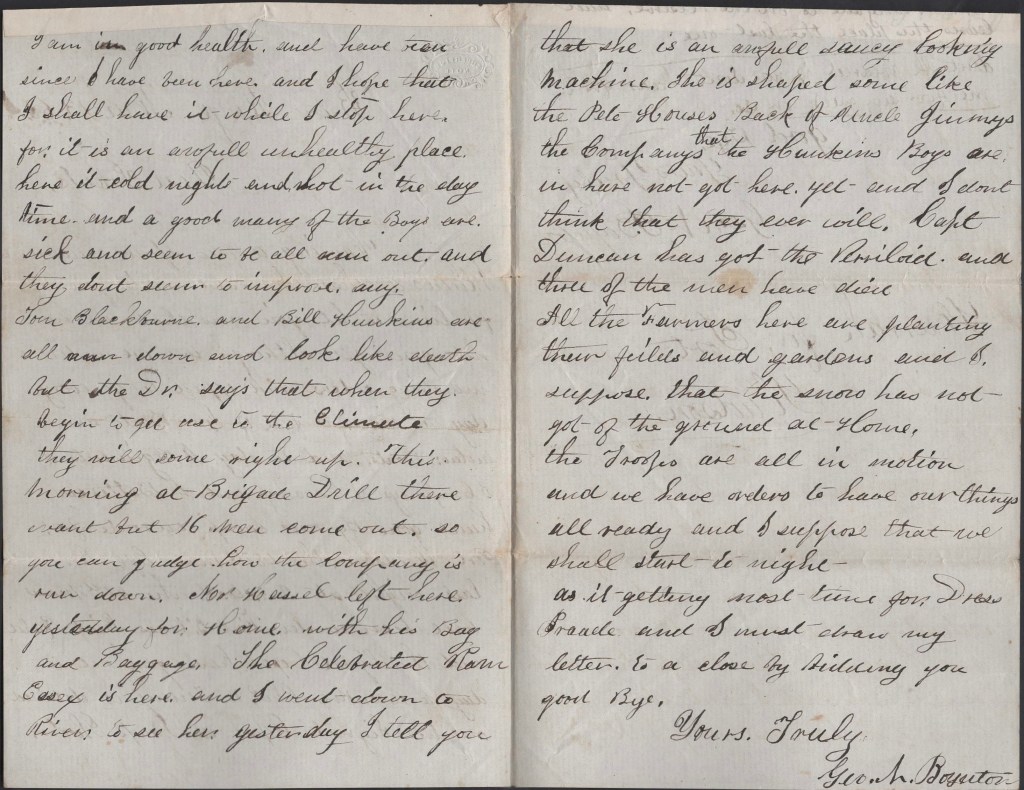 I am in good health. and have been
since I have been here. and I hope that
I shall have it while I stop here.
for. it is an awfull unhealthy place.
here it cold nights and hot in the day
time. and a good many of the Boys are.
sick and seem to be all run out. and
they dont seem to improve. any.
Tom Blackburne. and Bill Hunkins are
all run down and look like death
but the Dr. says that when they.
begin to get use to the Climate
they will some right up. This.
morning at Brigade Drill there
want but 16 men come out. so
you can judge how the company is
run down. Nor Hassel left here.
yesterday for. Home. with his Bag
and Baggage. The Celebrated Ram
Essex is here. and I went down to
River. to see her yesterday I tell you
that she is an awfull saucy looking
Machine. She is shaped some like
the Pelo Houses Back of Uncle Jimmys
the Companys that the Hunkins Boys are.
in have not got here. yet and I dont
think that they ever will. Capt
Duncan has got the Veriloid. and
three of the men have died
All the Farmers here are planting
their filds and gardens and I.
suppose. that the snow has not
got of the ground at Home.
the Troops are all in motion
and we have orders to have our things
all ready and I suppose that we
shall start to night
as it getting most time for. Dress
Praade and I must draw my
letter. to a close by bidding you
good Bye.
Yours. Truly.
Geo. N. Boynton